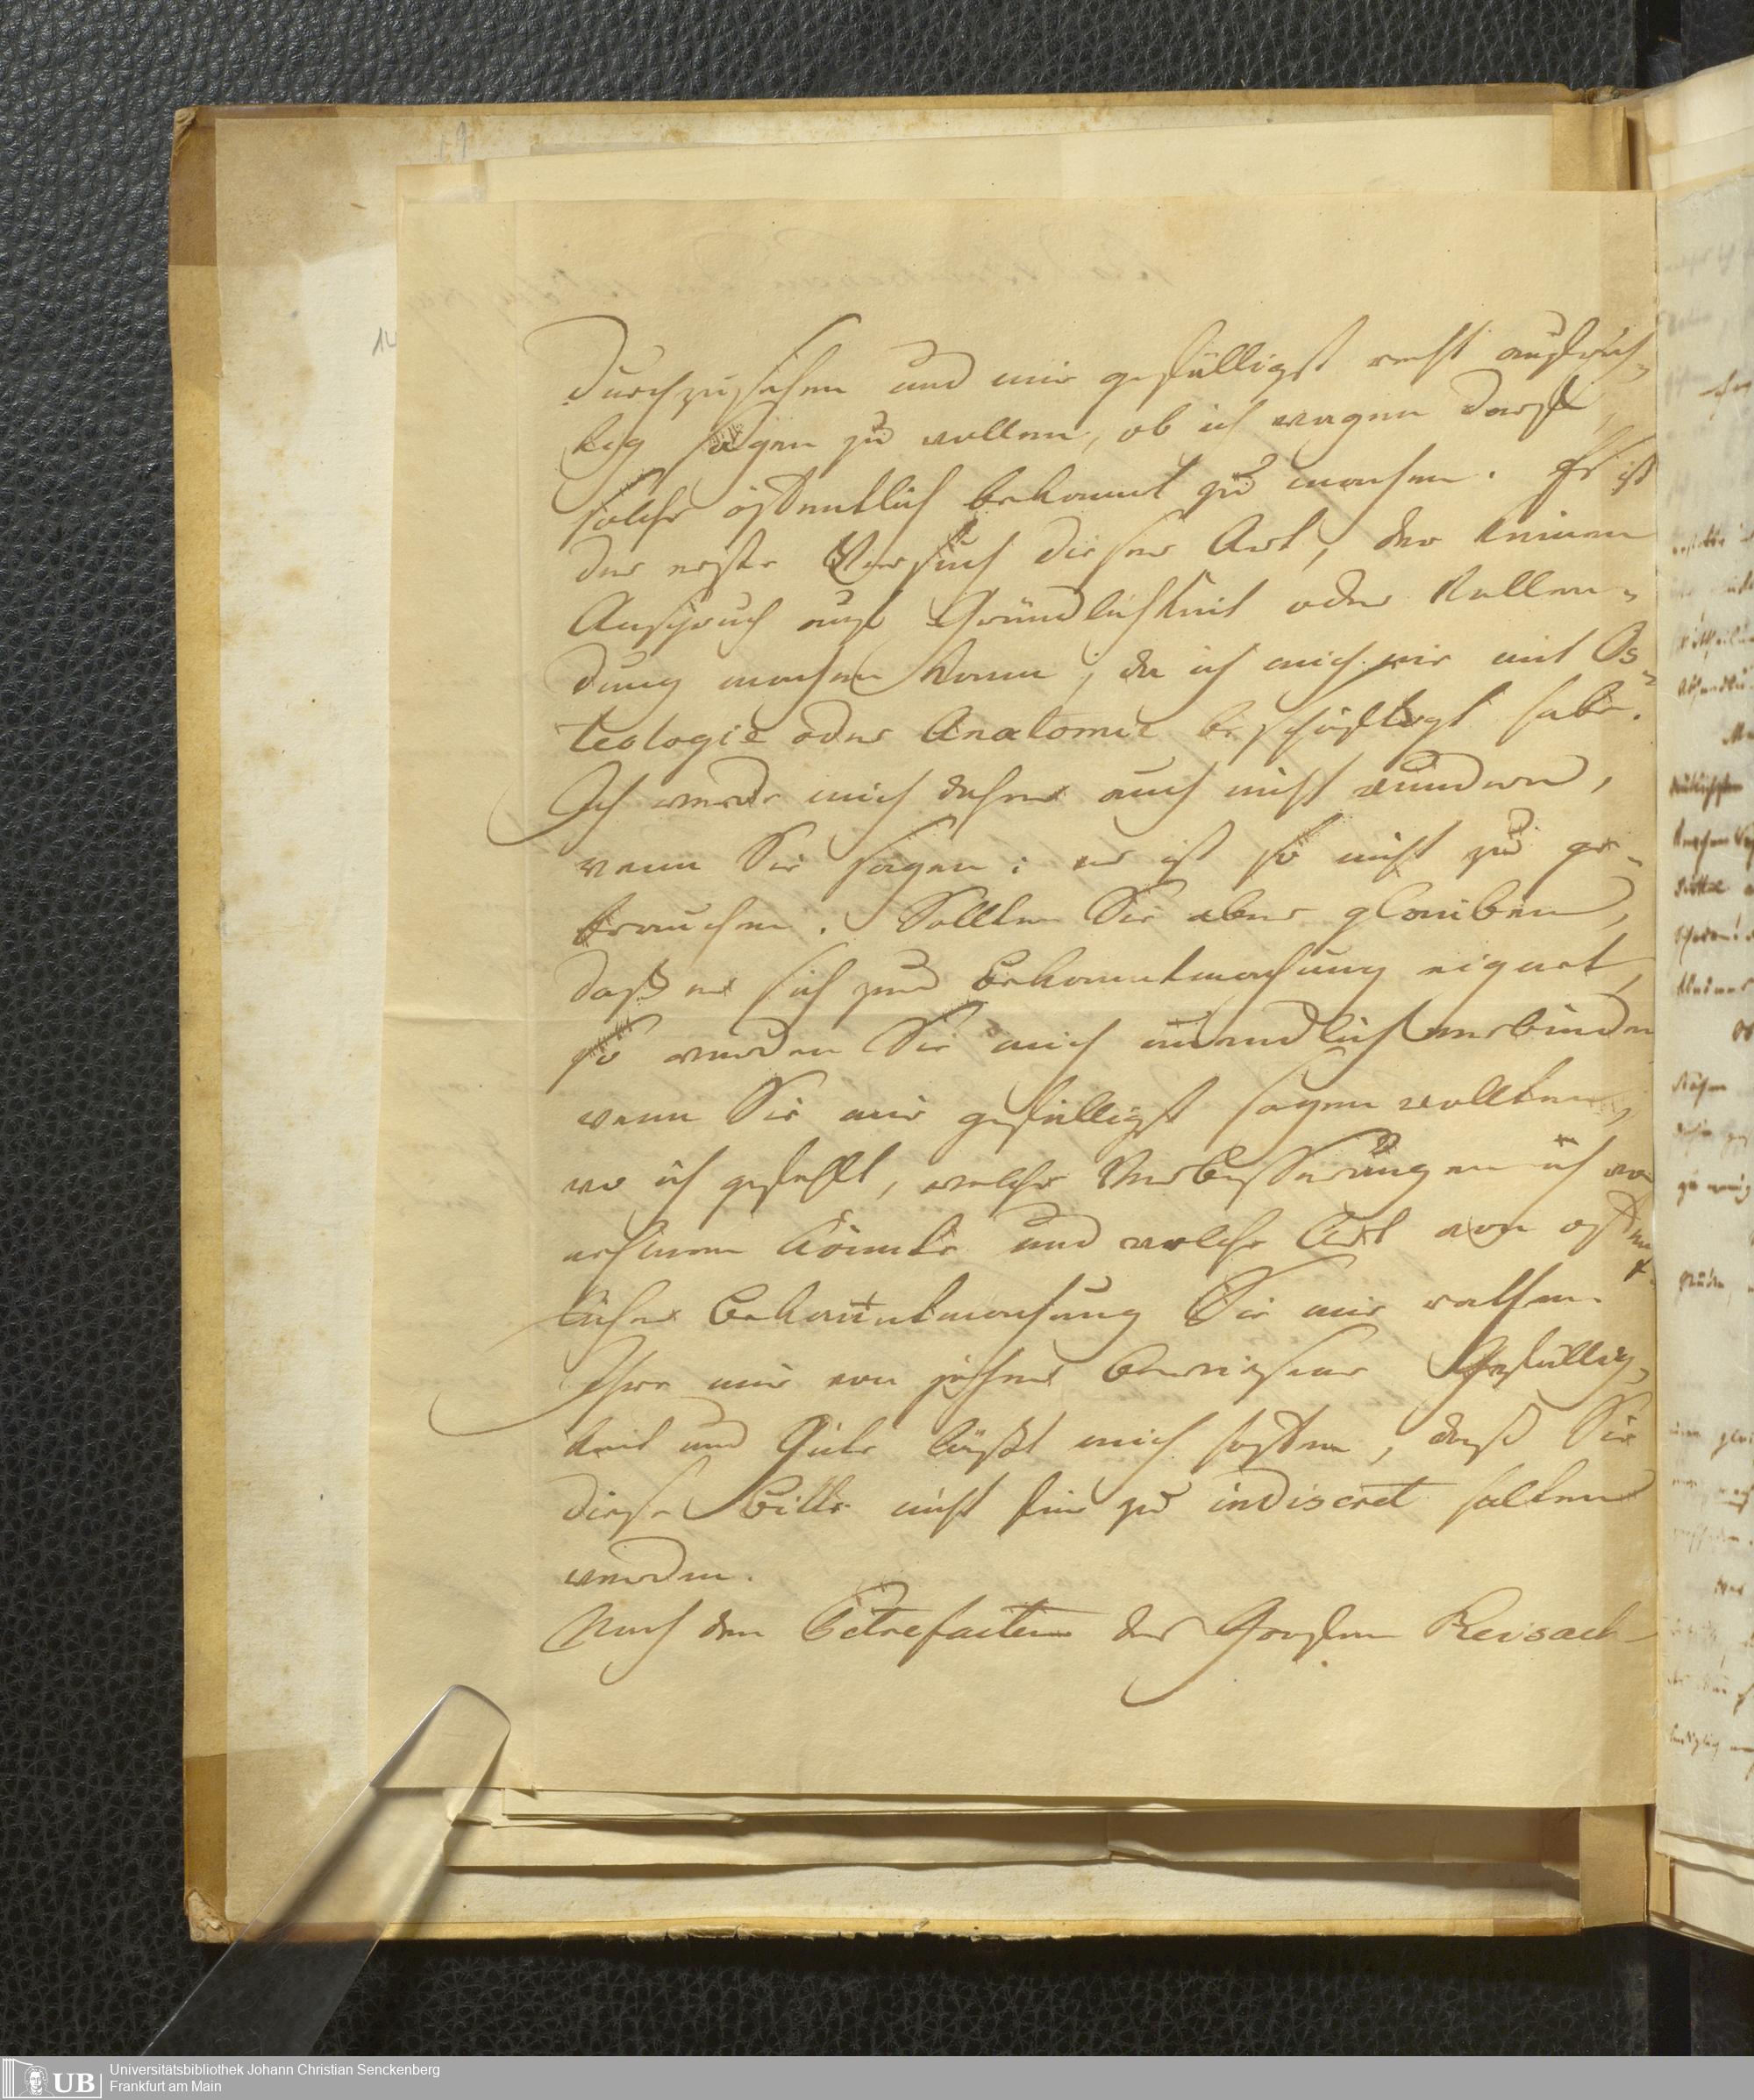 durchzusehen und mir gefälligst recht aufrich-
tig sagen zu wollen, ob ich wagen darf,
solche öffentlich bekannt zu machen. Es ist
der erste Versuch dieser Art, der keinen
Anspruch auf Gründlichkeit oder Vollen-
dung machen kann, da ich mich nie mit Os-
teologie oder Anatomie beschäftigt habe.
Ich werde mich daher auch nicht wundern,
wenn Sie sagen: er ist so nicht zu ge-
brauchen. Sollten Sie aber glauben,
daß er sich zur Bekanntmachung eignet,
so würden Sie mich unendlich verbinden
wenn Sie mir gefälligst sagen wollten,
wo ich gefehlt, welche Verbesserungen ich vor
nehmen könnte und welche Art von öffent
licher Bekanntmachung Sie mir rathen.
Ihre mir von jeher bewiesene Gefällig-
keit und Güte läßt mich hoffen, daß Sie
diese Bitte nicht für zu indiscret halten
werden.
Nach den Petrefacten der Grafen Reisach
Universitätsbibliothek Johann Christian Senckenberg
Frankfurt am Main
UB